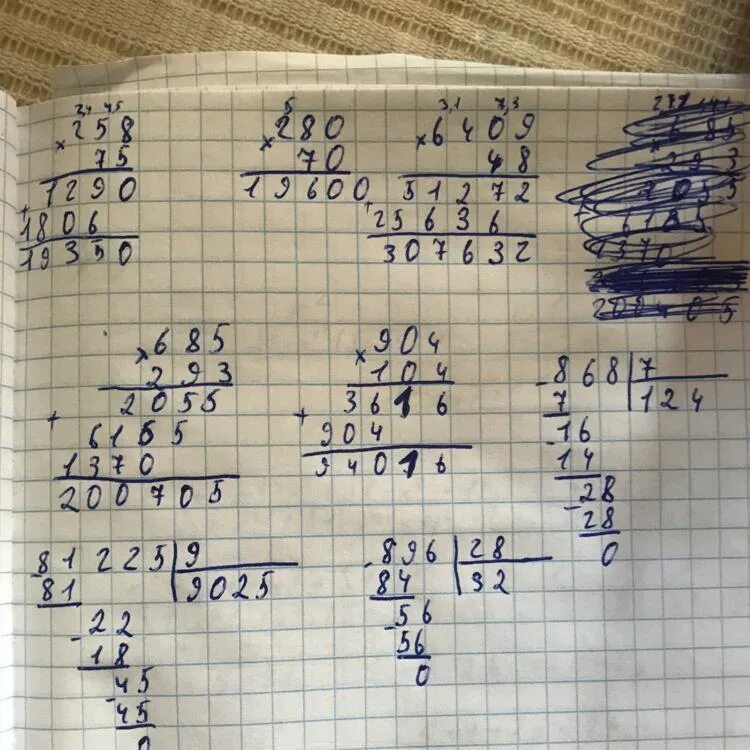 2,4 4,5
× 258
75
1290
+
1806
19350
5
× 280
70
19600
3,1 7,3
× 6409
48
51272
+
25636
307632
× 685
293
2055
+
6165
1370
200705
× 904
104
3616
+
904
94016
- 868 | 7
7 124
- 16
14
- 28
28
0
- 81225 | 9
81 9025
- 22
18
- 45
45
0
- 896 | 28
84 32
- 56
56
0